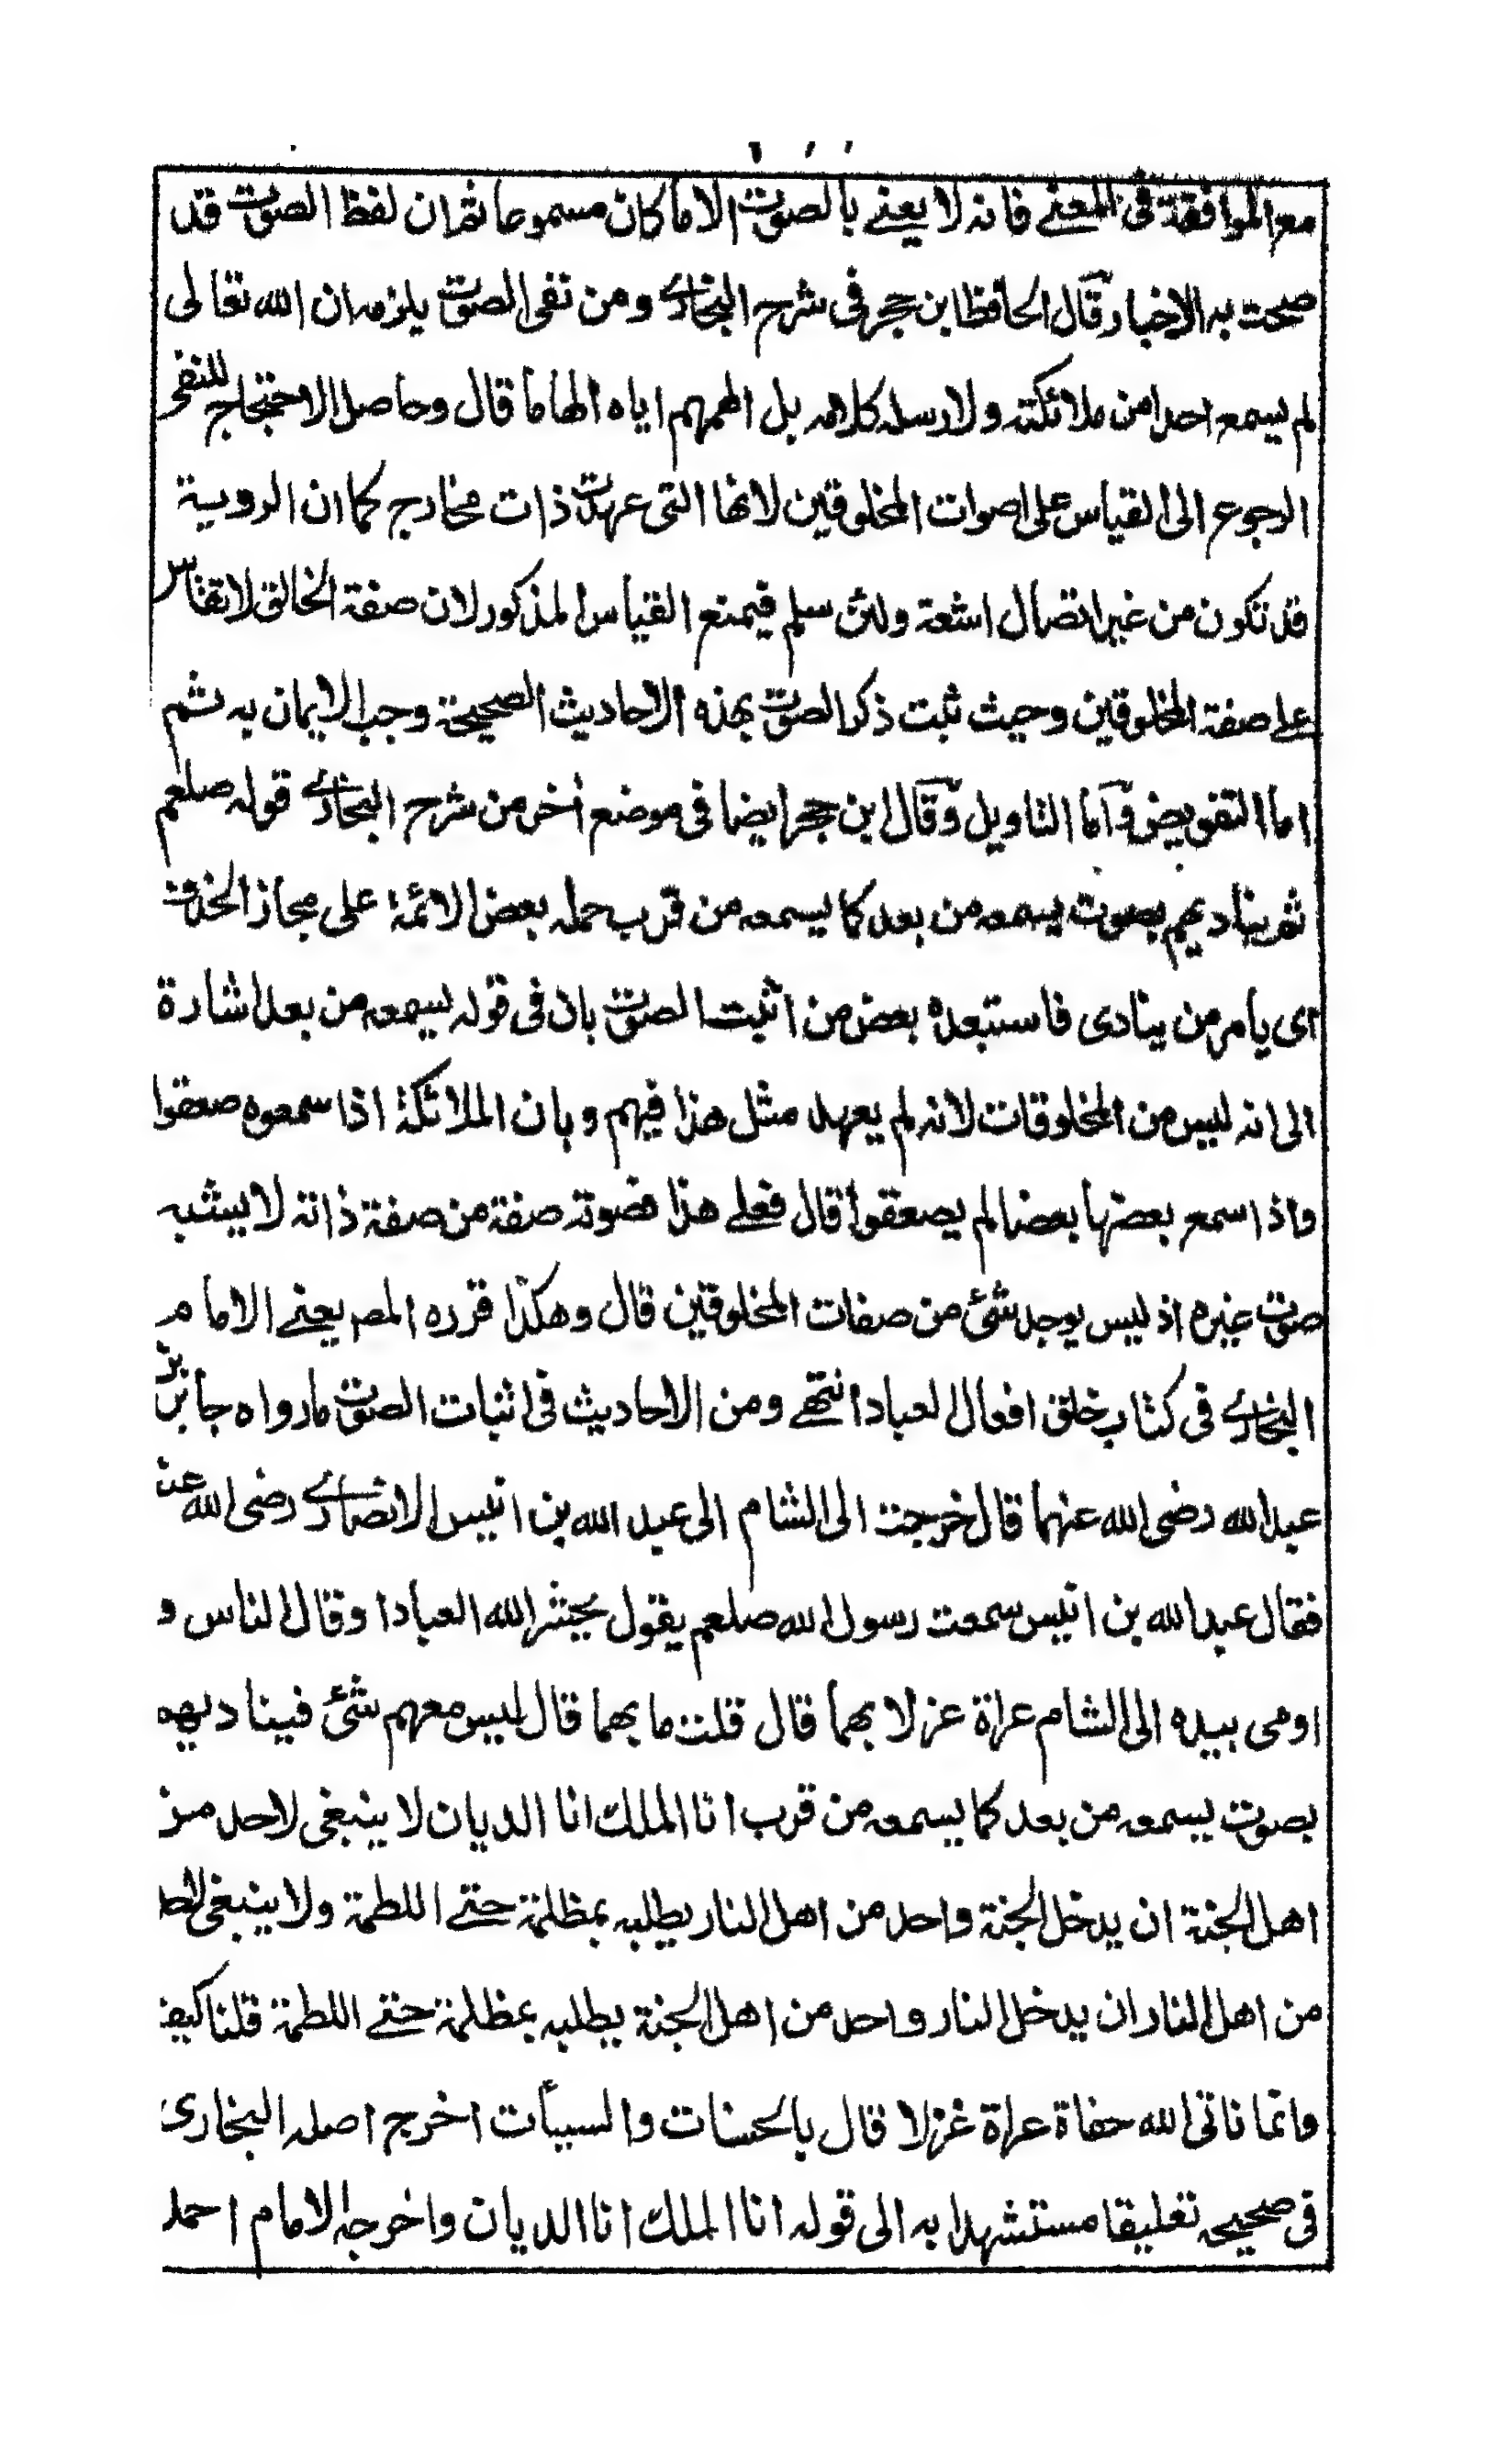 مع الموافقة فى المعنے فانه لا يعنے بالصوت الا ما كان مسموعا ثم ان لفظ الصوت قد
صحت به الاخبار قال الحافظ ابن حجر فى شرح البخارے ومن نفى الصوت يلزمه ان الله تعالى
لم يسمع احدا من ملائكته ولا رسله كلامه بل الهمهم اياه الهاما قال وحاصل الاحتجاج للنفى
الرجوع الى القياس على اصوات المخلوقين لانها التى عهدت ذات مخارج كما ان الروية
قد تكون من غير اتصال اشعة ولئن سلم فيمنع القياس المذكور لان صفة الخالق لا تقاس
على صفة المخلوقين وحيث ثبت ذكر الصوت بهذه الاحاديث الصحيحة وجب الايمان به ثم
اما التفويض وآما التاويل وقال ابن حجر ايضا فى موضع آخر من شرح البخارے قوله صلعم
ثم يناديهم بصوت يسمعه من بعد كما يسمعه من قرب حمله بعض الائمة على مجاز الحذف
اى يامر من ينادى فاستبعده بعض من اثبت الصوت بان فى قوله يسمعه من بعد اشارة
الى انه ليس من المخلوقات لانه لم يعهد مثل هذا فيهم وبان الملائكة اذا سمعوه صعقوا
واذا سمع بعضها بعضا لم يصعقوا قال فعلے هذا فصوته صفة من صفة ذاته لا يشبه
صوت غيره اذ ليس يوجد شئ من صفات المخلوقين قال وهكذا قرره المصـ يعنے الامام
البخارے فى كتاب خلق افعال العباد انتهے ومن الاحاديث فى اثبات الصوت ما رواه جابر بن
عبد الله رضى الله عنهما قال خرجت الى الشام الى عبد الله بن انيس الانصارے رضى الله عنه
فقال عبد الله بن انيس سمعت رسول الله صلعم يقول يحشر الله العباد او قال الناس و
اومى بيده الى الشام عراة عزلا بهما قال قلت ما بهما قال ليس معهم شئ فيناديهم
بصوت يسمعه من بعد كما يسمعه من قرب انا الملك انا الديان لا ينبغى لاحد من
اهل الجنة ان يدخل الجنة واحد من اهل النار يطلبه بمظلمة حتے اللطمة ولا ينبغى لاحد
من اهل النار ان يدخل النار واحد من اهل الجنة يطلبه بمظلمة حتے اللطمة قلنا كيف
وانما ناتى الله حفاة عراة غزلا قال بالحسنات والسيأت اخرج اصله البخارى
فى صحيحه تعليقا مستشهدا به الى قوله انا الملك انا الديان واخرجه الامام احمد